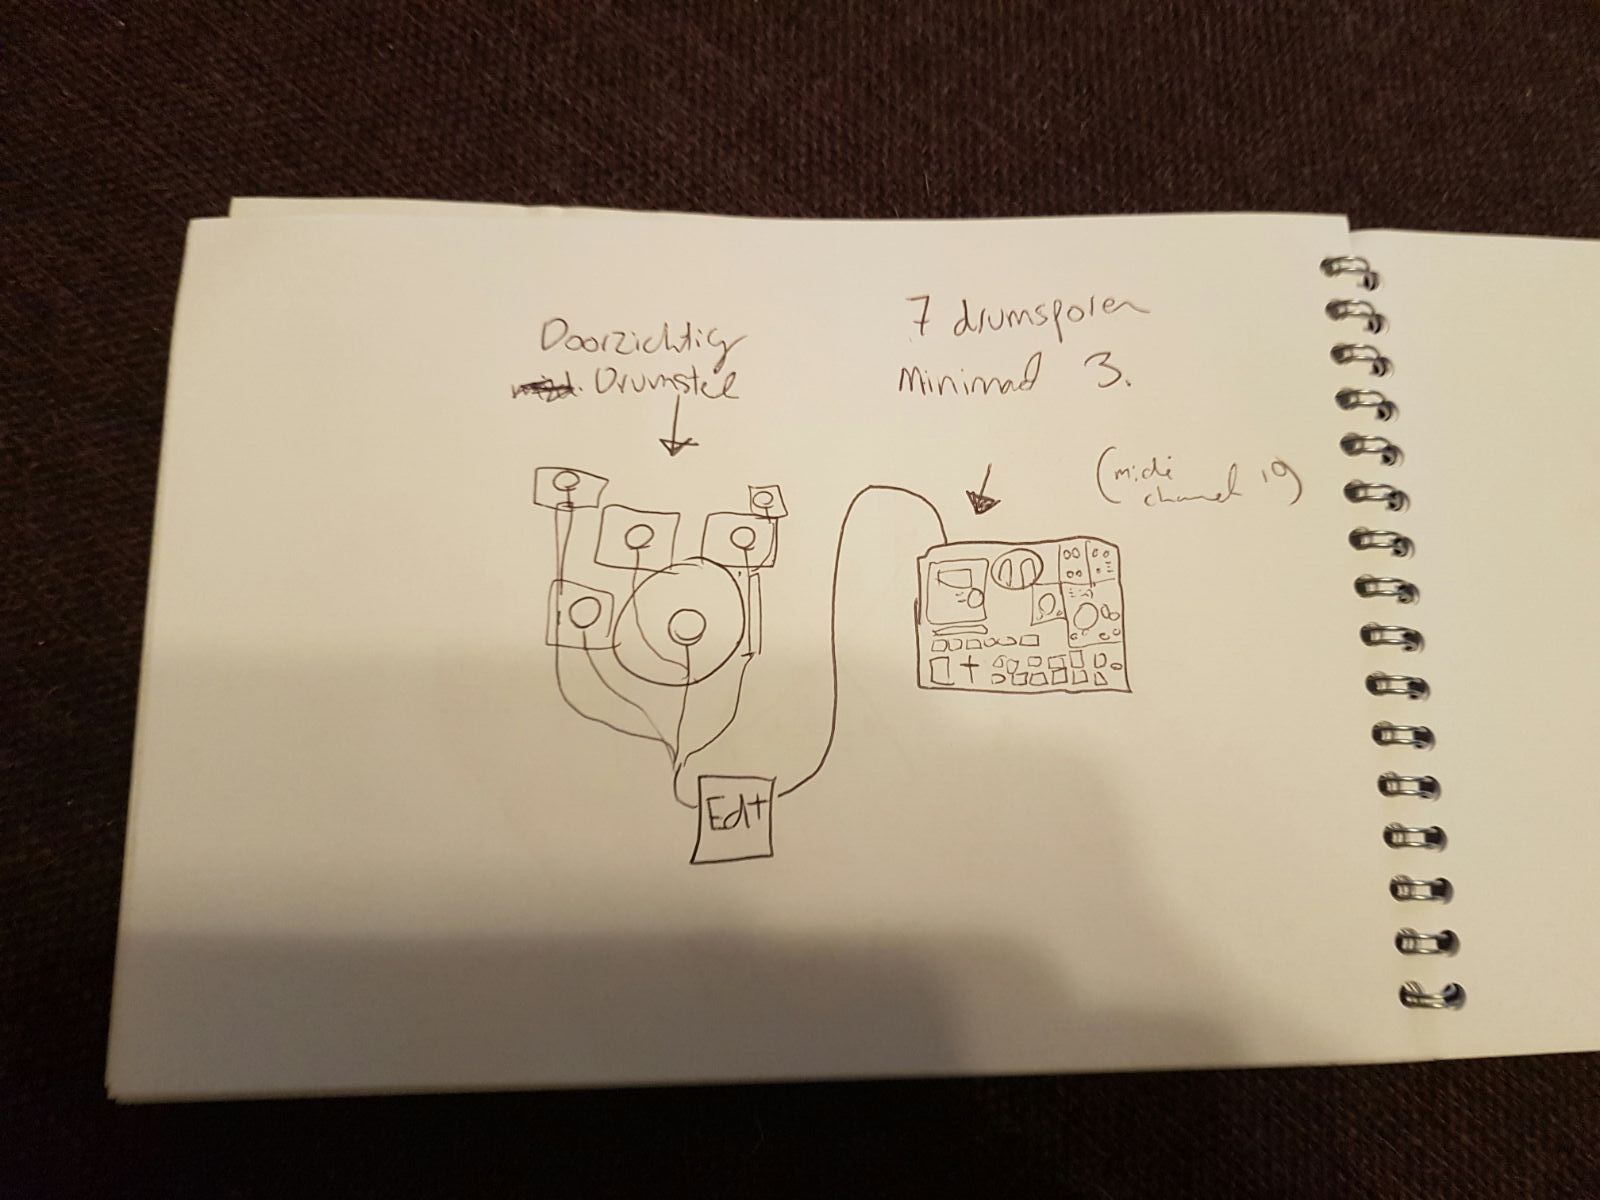 Doorzichtig
Drumstel
7 drumsporen
Minimaal 3.
(midi
channel
Ed+